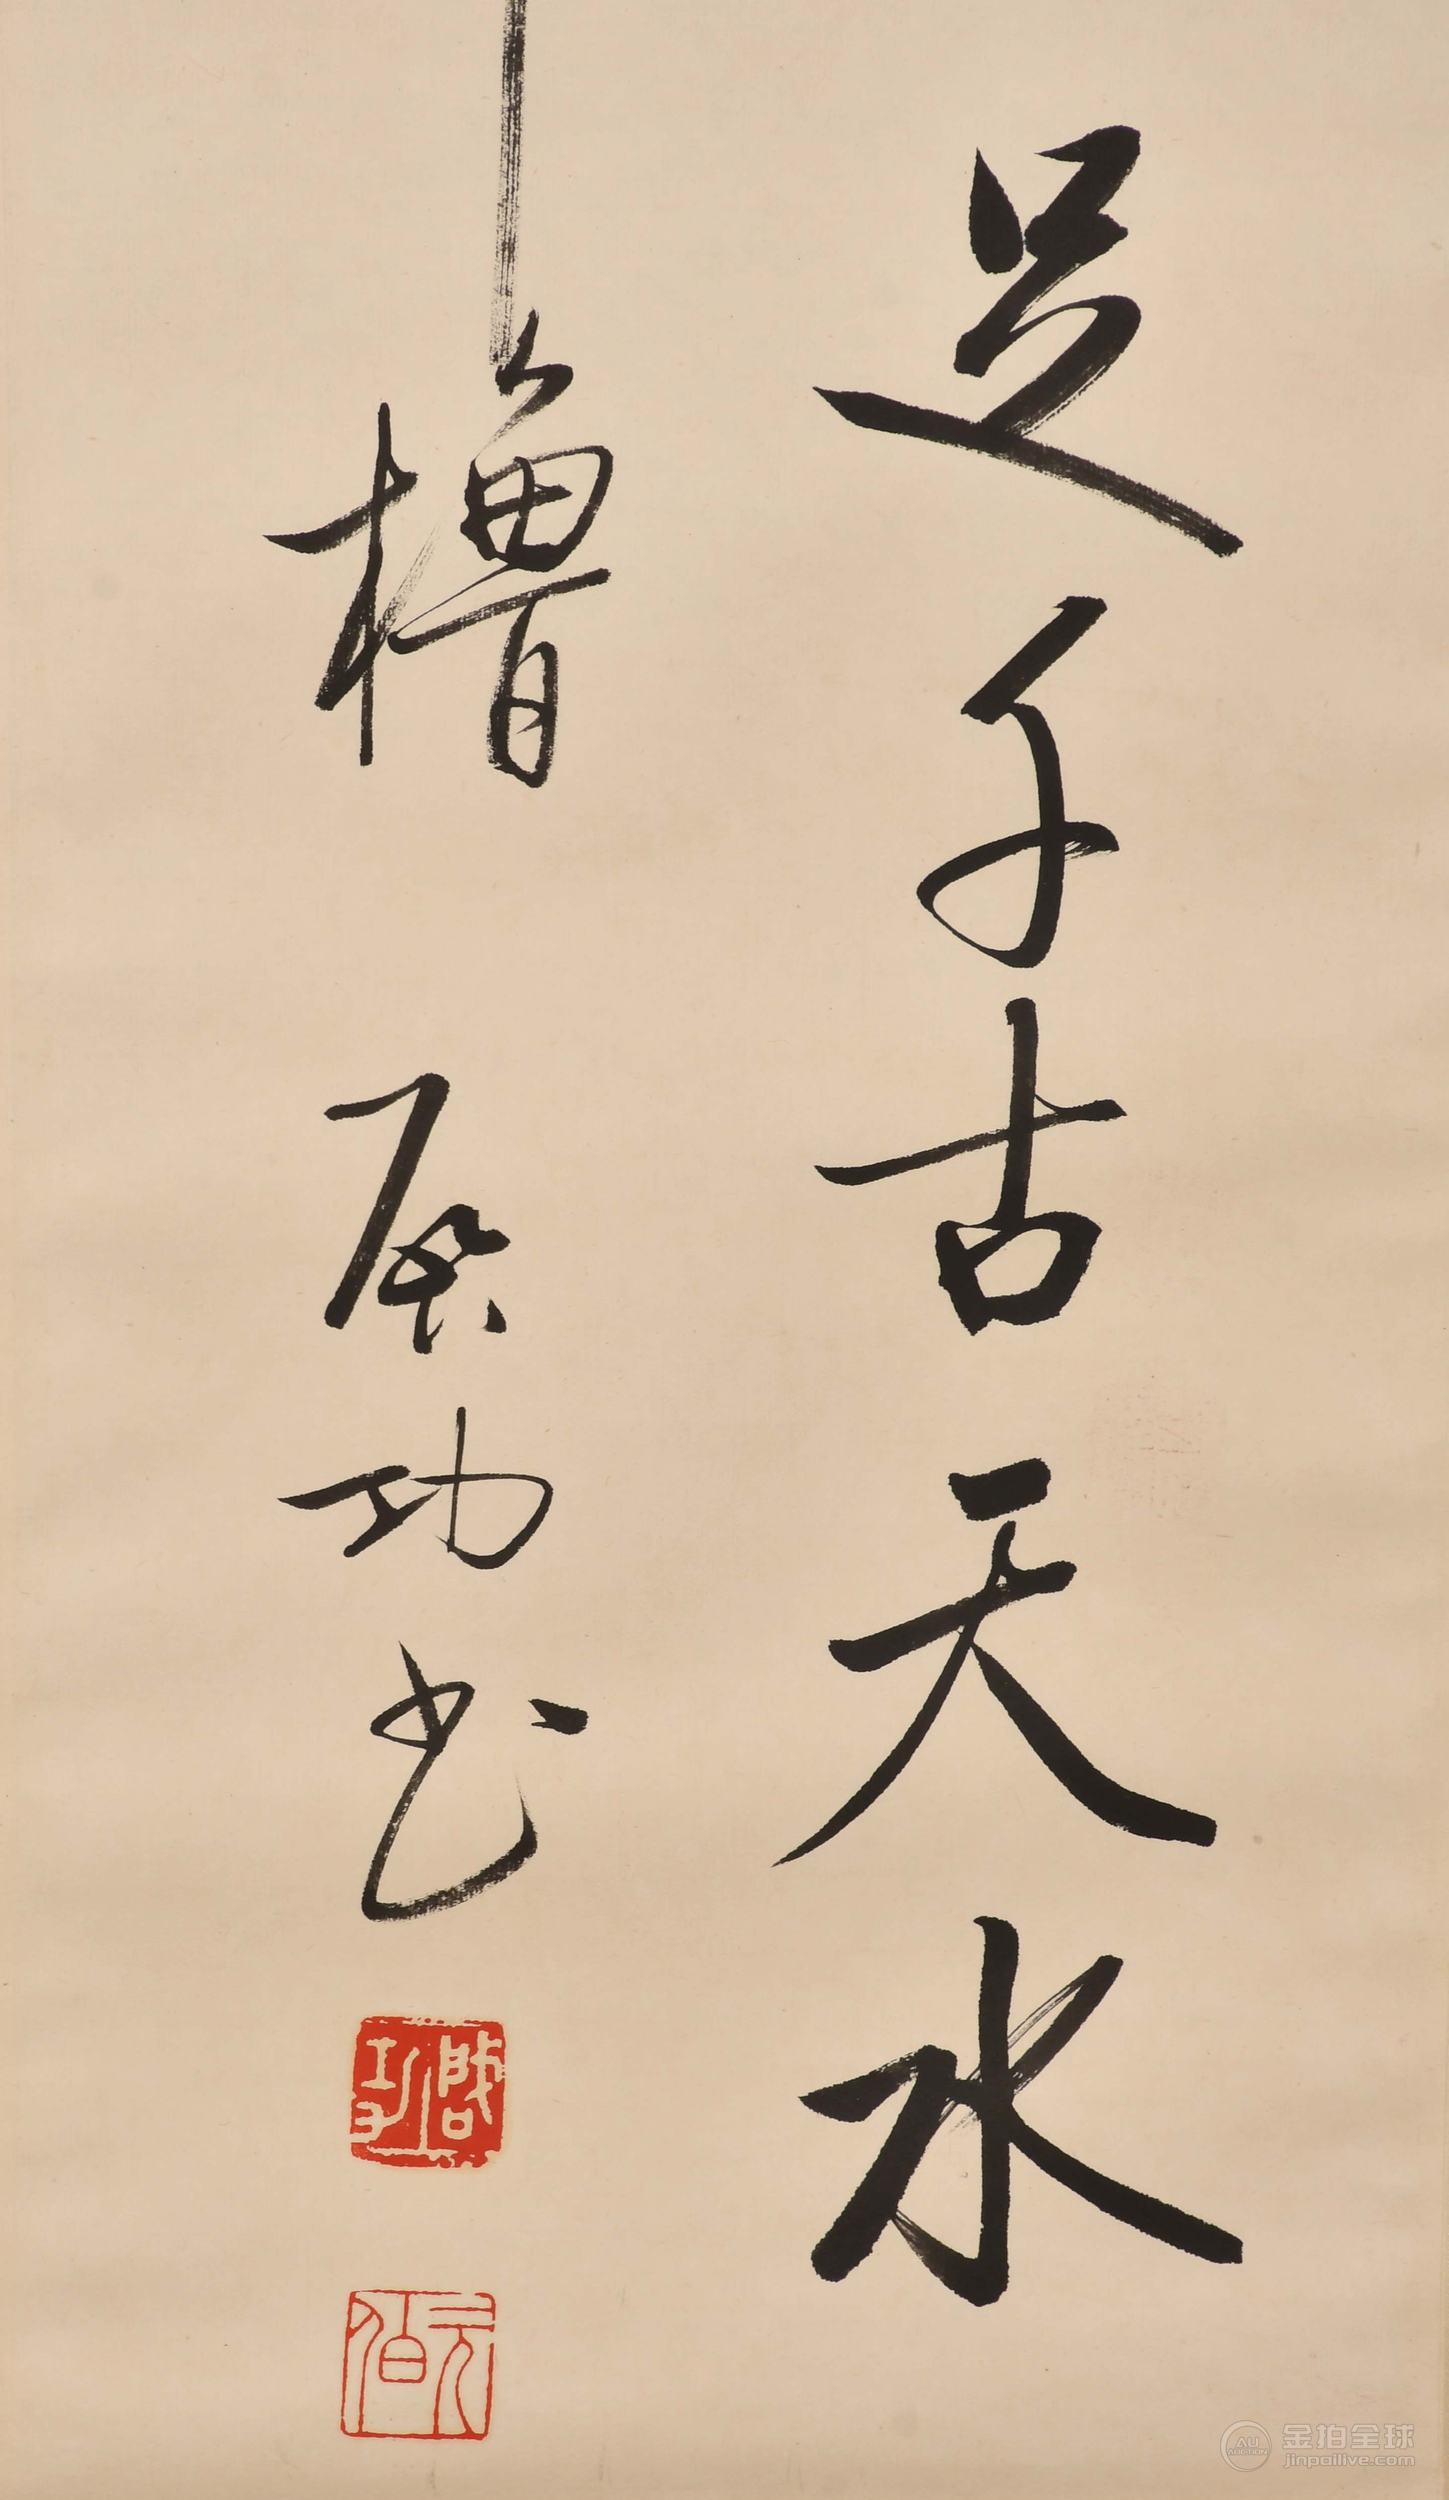 足千古天水
櫓 启功书
启功
元白
金拍全球
jinpailive.com